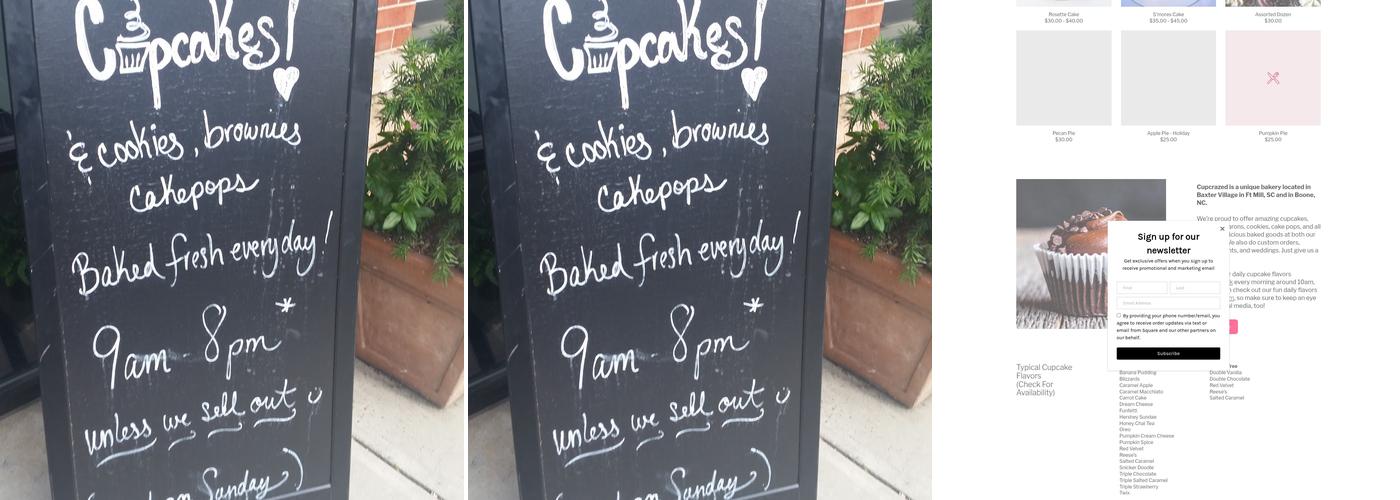 Cupcakes!
& cookies, brownies
cakepops
Baked fresh everyday!
9am - 8pm *
unless we sell out
Sunday)
Cupcakes!
& cookies, brownies
cakepops
Baked fresh everyday!
9am - 8pm *
unless we sell out
Sunday)
Rosette Cake
$30.00 - $40.00
S'mores Cake
$35.00 - $45.00
Assorted Dozen
$30.00
Pecan Pie
$30.00
Apple Pie - Holiday
$25.00
Pumpkin Pie
$25.00
Cupcrazed is a unique bakery located in
Baxter Village in Ft Mill, SC and in Boone,
NC.
We're proud to offer amazing cupcakes,
cookies, cake pops, and all
baked goods at both our
We also do custom orders,
and weddings. Just give us a
daily cupcake flavors
every morning around 10am,
check out our fun daily flavors
so make sure to keep an eye
media, too!
Sign up for our
newsletter
Get exclusive offers when you sign up to
receive promotional and marketing email
First
Last
Email Address
By providing your phone number/email, you
agree to receive order updates via text or
email from Square and our other partners on
our behalf.
Subscribe
Typical Cupcake
Flavors
(Check For
Availability)
Banana Pudding
Blizzards
Caramel Apple
Caramel Macchiato
Carrot Cake
Dream Cheese
Funfetti
Hershey Sundae
Honey Chai Tea
Oreo
Pumpkin Cream Cheese
Pumpkin Spice
Red Velvet
Reese's
Salted Caramel
Snicker Doodle
Triple Chocolate
Triple Salted Caramel
Triple Strawberry
Twix
Double Vanilla
Double Chocolate
Red Velvet
Reese's
Salted Caramel